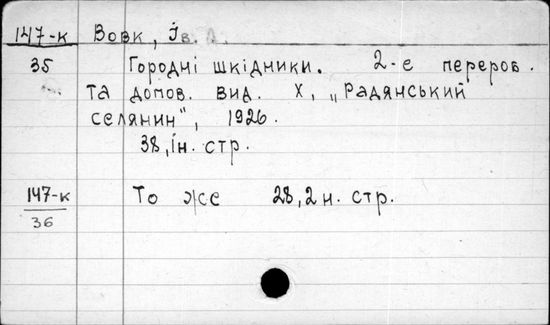 147-к Вовк, Ів. А.
35 Городні шкідники. 2-е перероб.
та допов. вид. Х, „Радянський
селянин", 1926.
38, Ін. стр.
147-к То же 28, 2 н. стр.
36